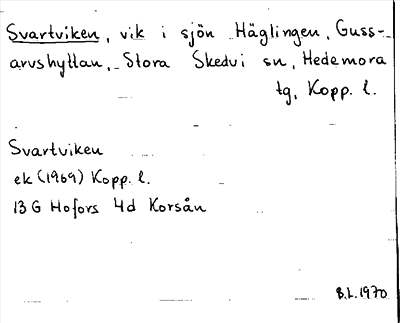 Svartviken, vik i sjön Häglingen, Guss-
arvshyttan, Stora Skedvi sn, Hedemora
tg, Kopp. l.
Svartviken
ek (1969) Kopp. l.
13 G Hofors 4d Korsån
B.L. 1970